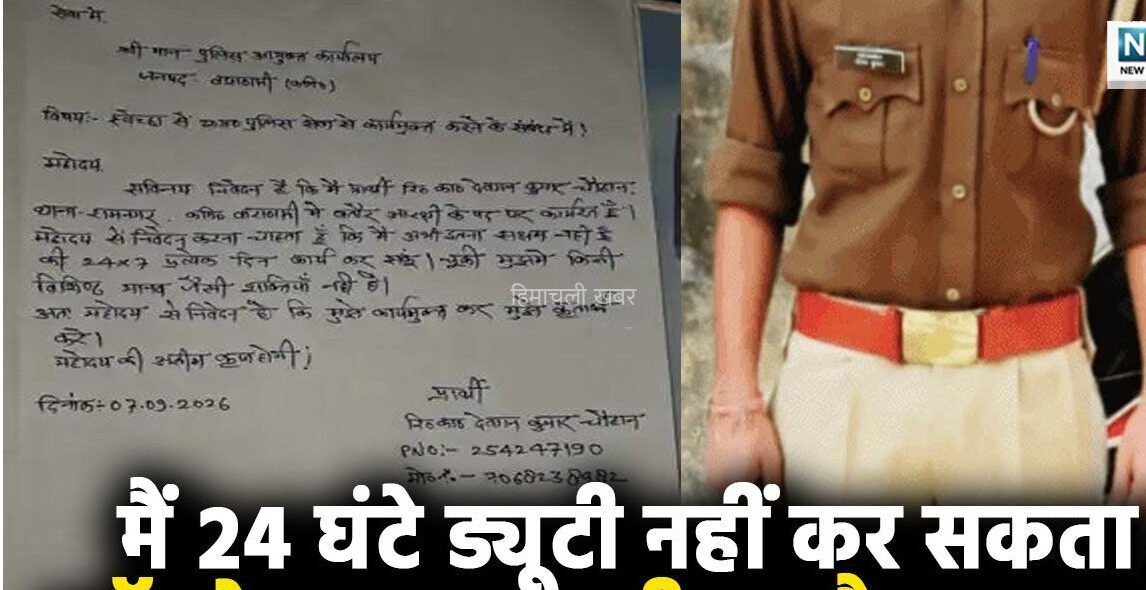 सेवा मे,
श्री मान पुलिस आयुक्त कार्यालय
जनपद वाराणसी (कमि०)
विषय:- स्वेच्छा से उ०प्र० पुलिस सेवा से कार्यमुक्त करने के संबंध मे।
महोदय,
सविनय निवेदन है कि मै प्रार्थी रि० का० देवगन कुमार चौहान
थाना-रामनगर, कमि० वाराणसी मे बतौर आरक्षी के पद पर कार्यरत है।
महोदय से निवेदन करना चाहता है कि मै अभी इतना सक्षम नही है
की 24x7 प्रत्येक दिन कार्य कर सकूं। चूकी मुझमे किसी
विशिष्ट मानव जैसी शक्तियाँ नही है।
अतः महोदय से निवेदन है कि मुझे कार्यमुक्त कर मुझे कृतार्थ
करे।
महोदय की असीम कृपा होगी।
दिनांक:-07.09.2026
प्रार्थी
रि० का० कुमार चौहान
PNO:- 254247190
मो०नं०-
हिमाचली खबर
N
NEW
मैं 24 घंटे ड्यूटी नहीं कर सकता